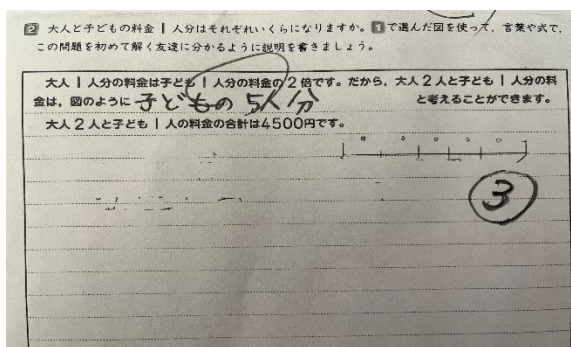 2 大人と子どもの料金1人分はそれぞれいくらになりますか。1で選んだ図を使って、言葉や式で、
この問題を初めて解く友達に分かるように説明を書きましょう。
大人1人分の料金は子ども1人分の料金の2倍です。だから、大人2人と子ども1人分の料
金は、図のように 子どもの5人分 と考えることができます。
大人2人と子ども1人の料金の合計は4500円です。
3